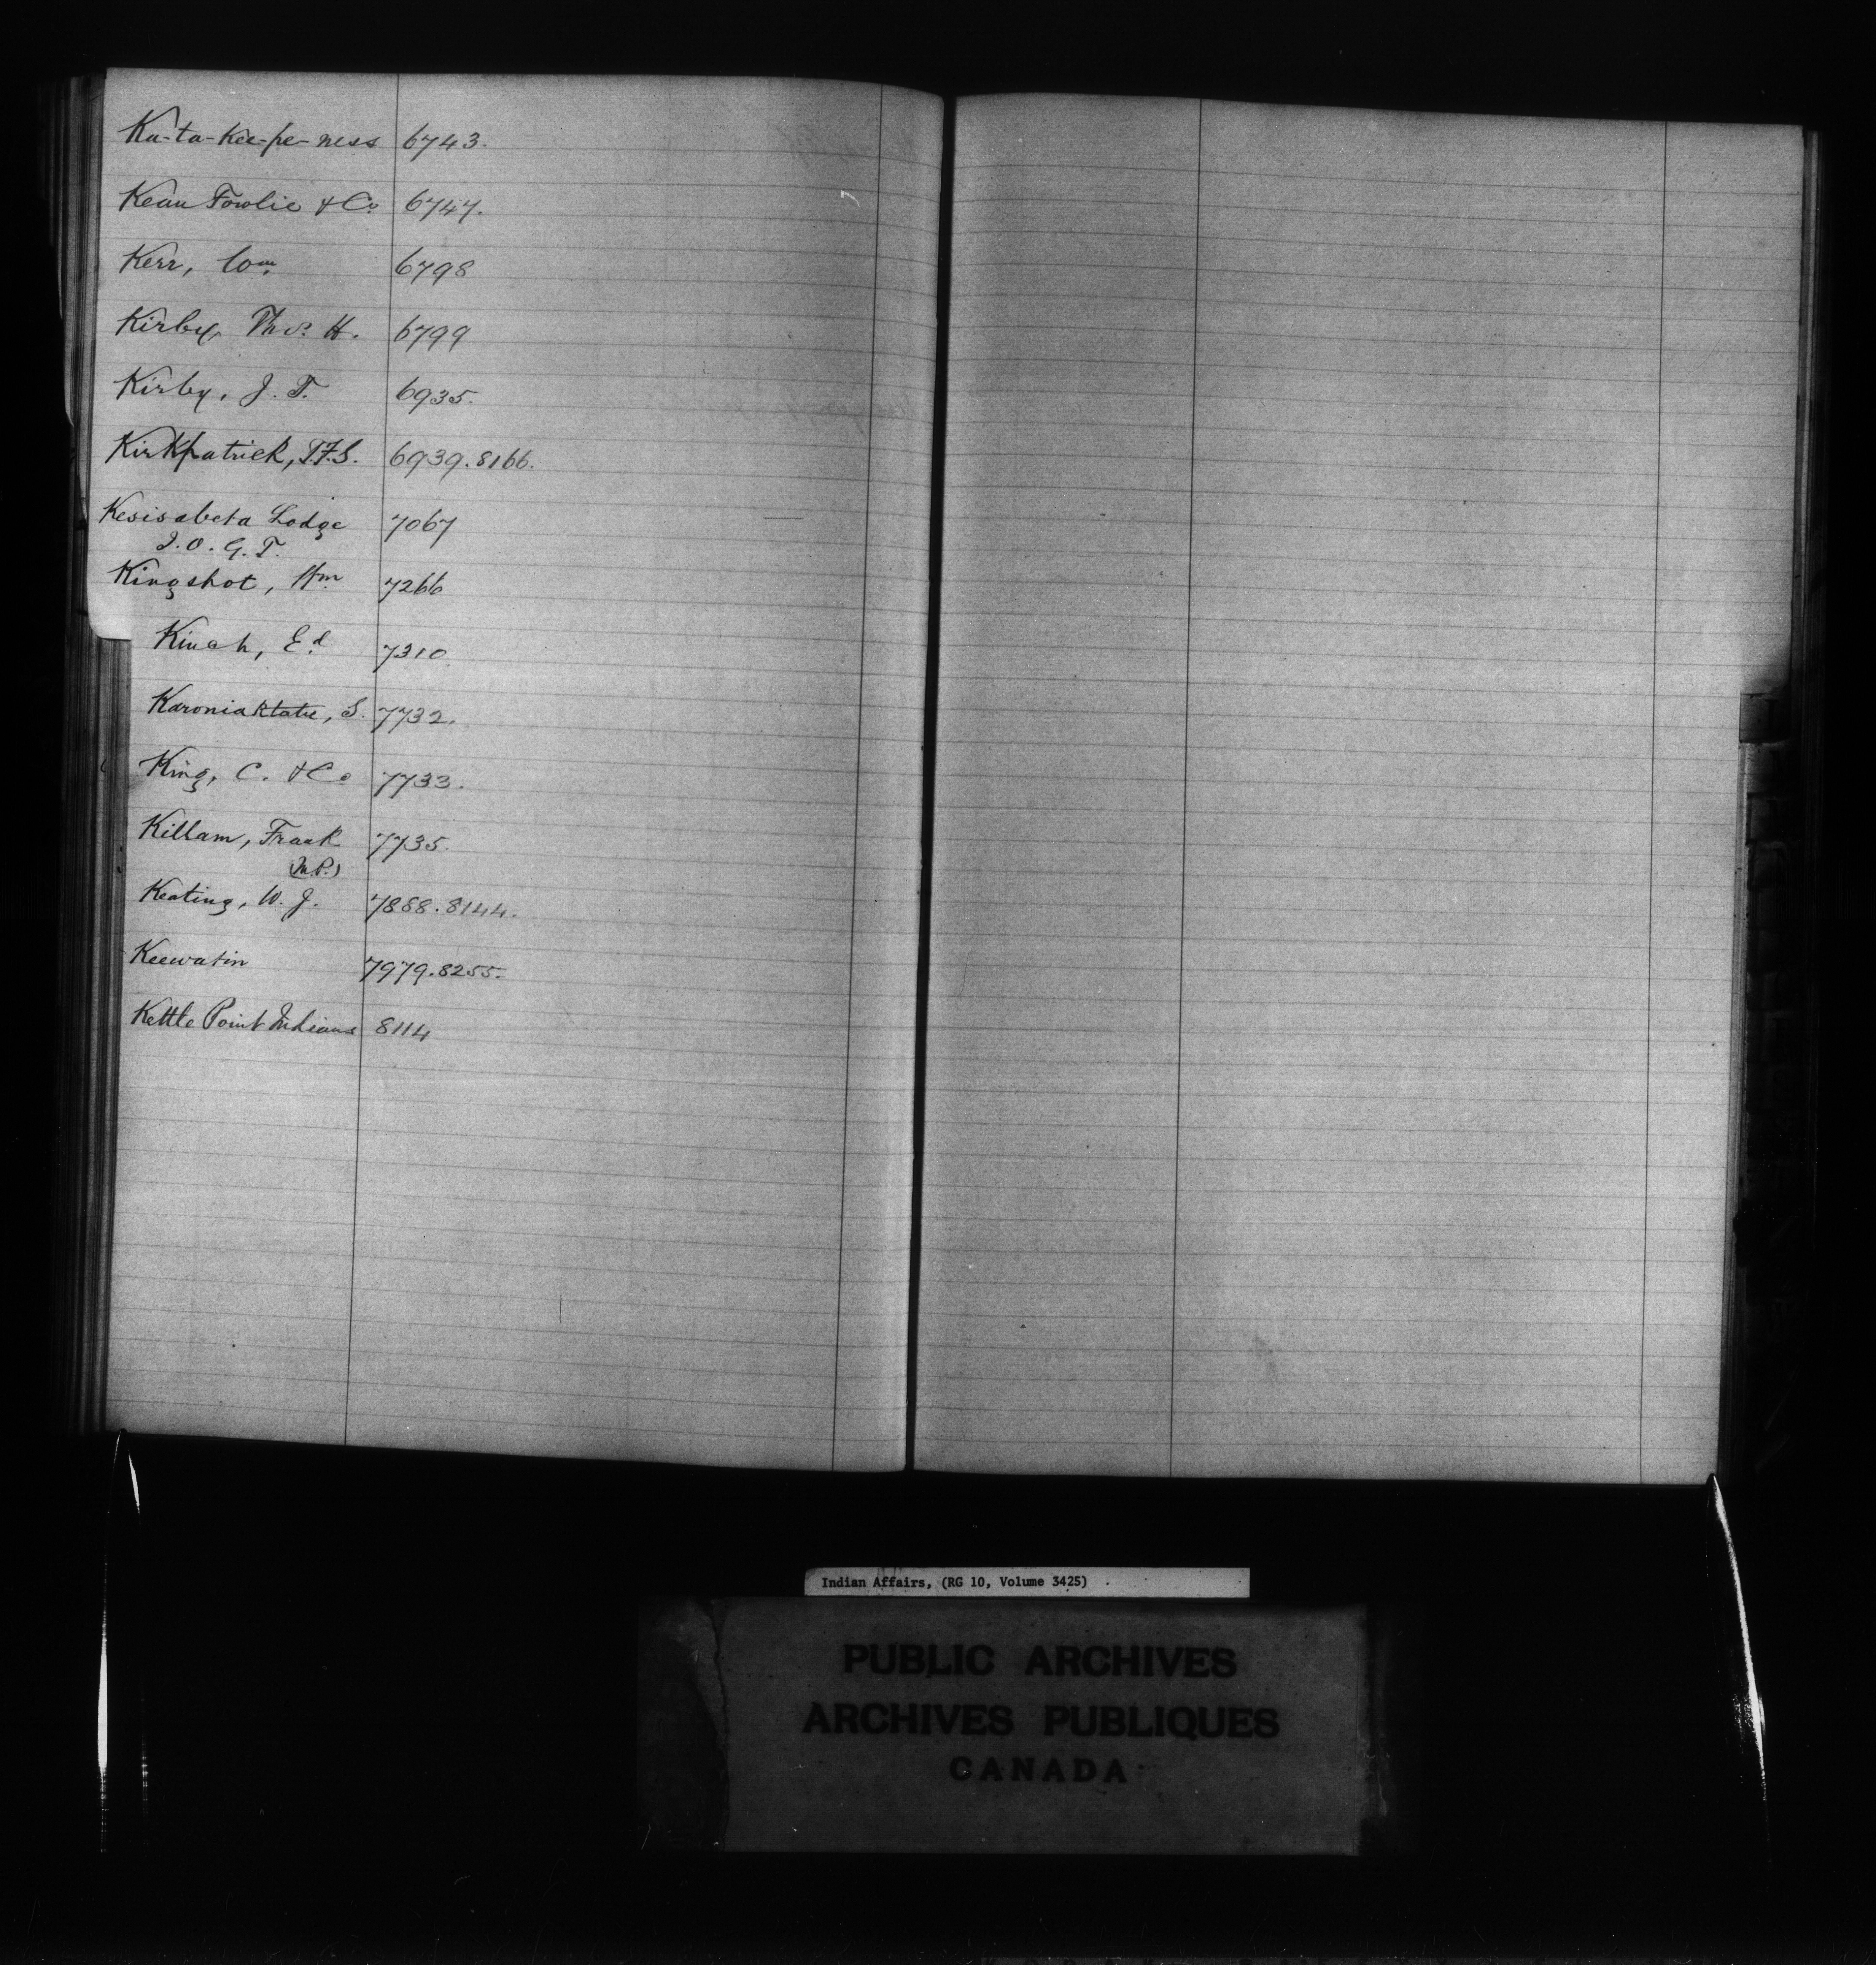 Ka-ta-kee-pe-ness 6743.
Kean Fowlie & Co. 6747.
Kerr, Wm. 6798
Kirby, Thos. H. 6799
Kirby, J. T. 6935.
Kirkpatrick, T.F.S. 6939. 8166.
Kesisabeta Lodge 7067
I. O. G. T.
Kingshot, Wm. 7266
Kinah, Ed. 7310
Karoniaktatie, S. 7732.
King, C. & Co 7733.
Killam, Frank 7735.
(M.P.)
Keating, W. J. 7888. 8144.
Keewatin 7979. 8255.
Kettle Point Indians 8114
Indian Affairs, (RG 10, Volume 3425)
PUBLIC ARCHIVES
ARCHIVES PUBLIQUES
CANADA